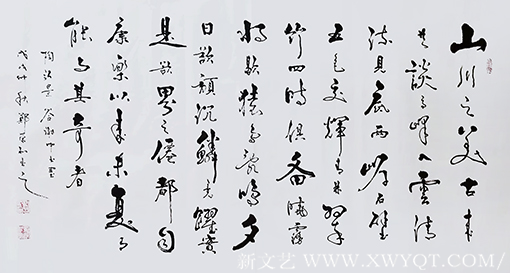 山川之美古来
共談高峰入雲清
流見底兩岸石壁
五色交輝青林翠
竹四時俱備曉霧
將歇猿鳥亂鳴夕
日欲頹沉鱗競躍實
是欲界之仙都自
康樂以來未復有
能與其奇者
陶弘景答謝中書書
戊戌仲秋鄭
新文艺 WWW.XWYQT.COM/